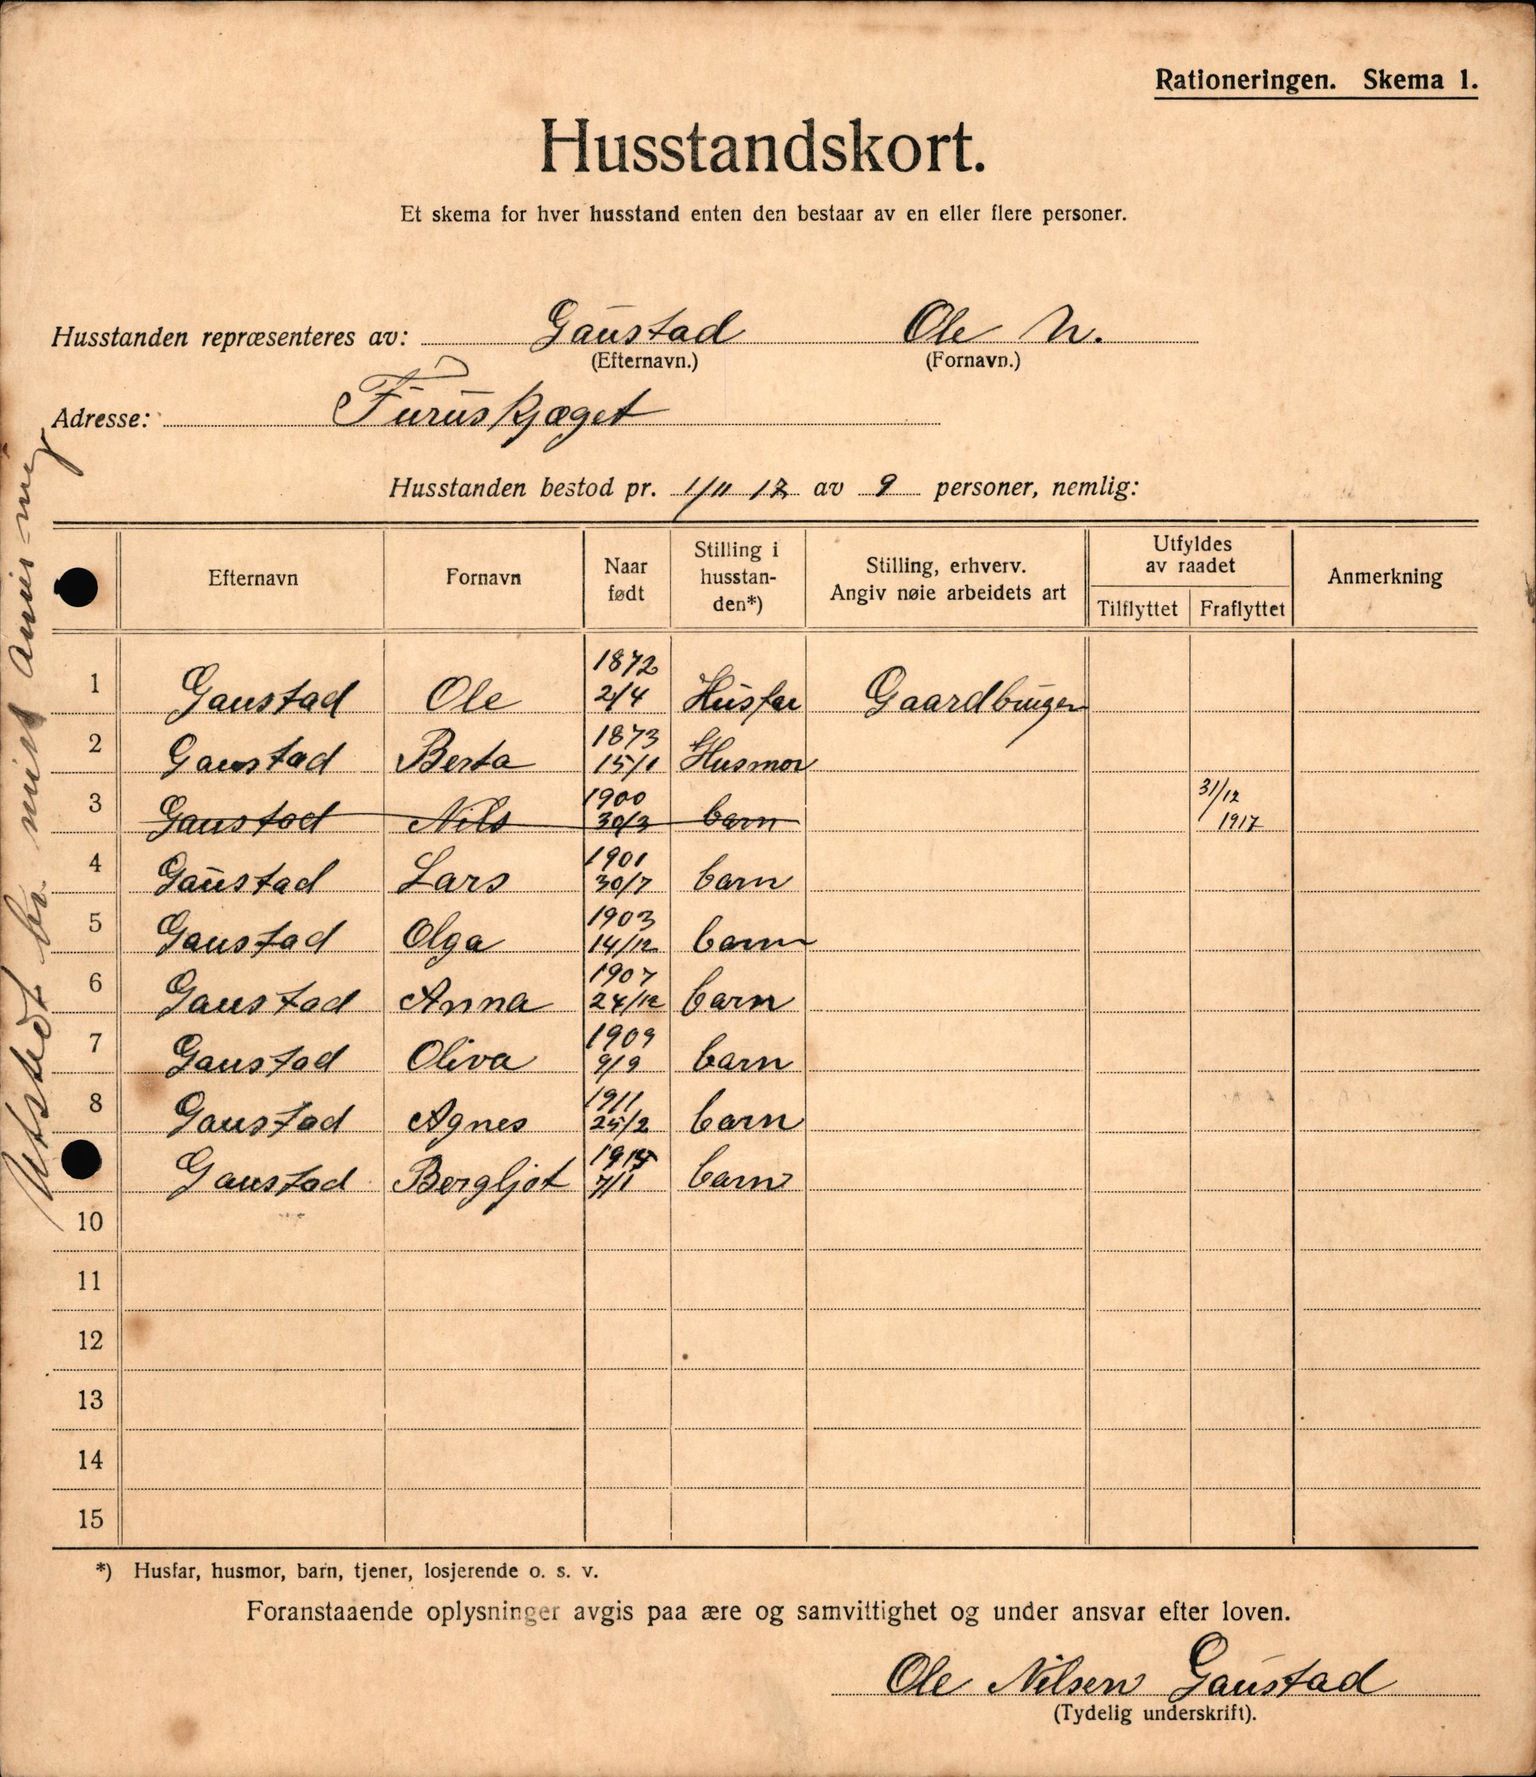 Rationeringen. Skema 1.
Husstandskort.
Et skema for hver husstand enten den bestaar av en eller flere personer.
Husstanden repræsenteres av: Gaustad Ole N.
(Efternavn.) (Fornavn.)
Adresse: Furuskjæget
Husstanden bestod pr. 1/11 17 av 9 personer, nemlig:
Efternavn Fornavn Naar født Stilling i husstanden*) Stilling, erhverv. Angiv nøie arbeidets art Utfyldes av raadet Tilflyttet Fraflyttet Anmerkning
1 Gaustad Ole 1872 2/4 Husfar Gaardbruger
2 Gaustad Berta 1873 15/1 Husmor
3 Gaustad Nils 1900 30/3 barn 31/12 1917
4 Gaustad Lars 1901 30/7 barn
5 Gaustad Olga 1903 14/12 barn
6 Gaustad Anna 1907 24/12 barn
7 Gaustad Oliva 1909 9/9 barn
8 Gaustad Agnes 1911 25/2 barn
Gaustad Bergljot 7/1 barn
10
11
12
13
14
15
*) Husfar, husmor, barn, tjener, losjerende o. s. v.
Foranstaaende oplysninger avgis paa ære og samvittighet og under ansvar efter loven.
Ole Nilsen Gaustad
(Tydelig underskrift).
Utstedt